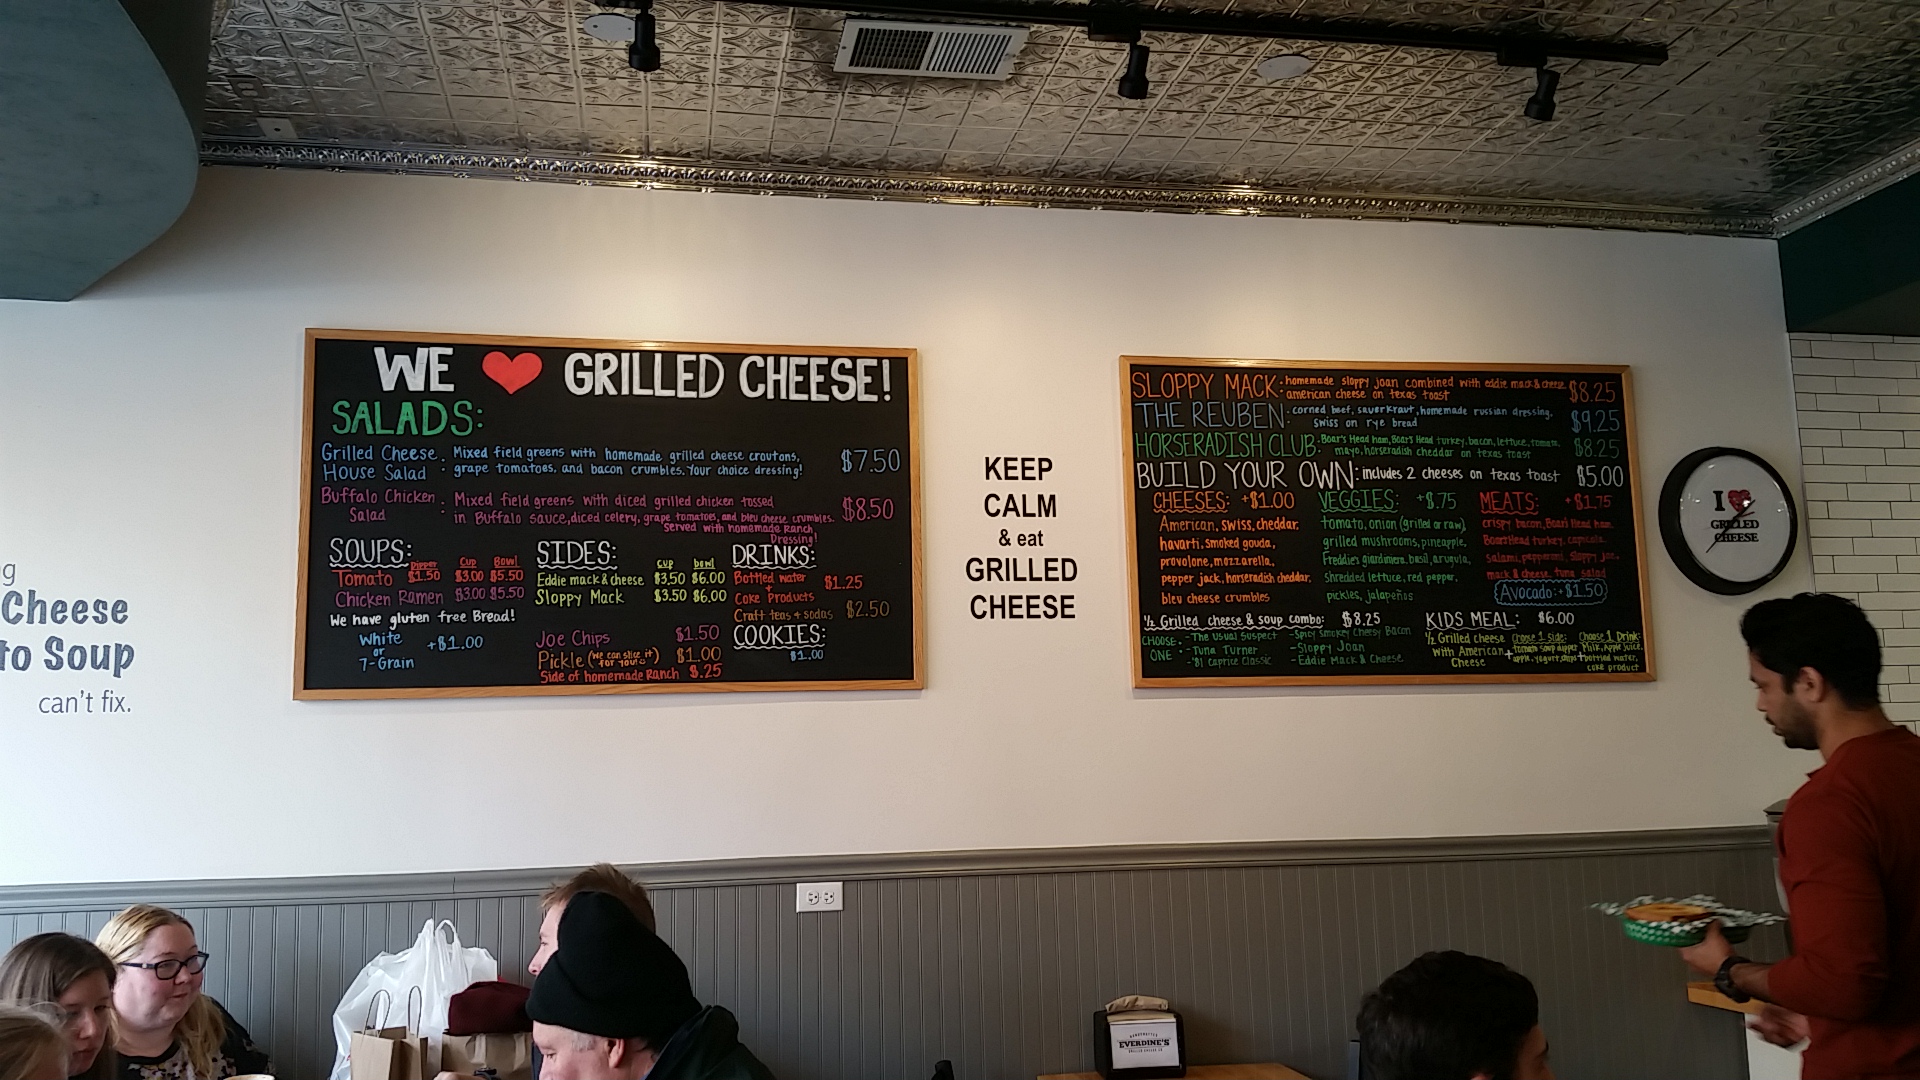 g
Cheese
to Soup
can't fix.
WE ❤ GRILLED CHEESE!
SALADS:
Grilled Cheese House Salad: Mixed field greens with homemade grilled cheese croutons, $7.50
grape tomatoes, and bacon crumbles. Your choice dressing!
Buffalo Chicken Salad: Mixed field greens with diced grilled chicken tossed $8.50
in Buffalo sauce, diced celery, grape tomatoes, and bleu cheese crumbles.
Served with homemade Ranch
Dressing!
SOUPS:
Dipper Cup Bowl
Tomato $1.50 $3.00 $5.50
Chicken Ramen $3.00 $5.50
We have gluten free Bread!
White
or +$1.00
7-Grain
SIDES:
Cup bowl
Eddie mack & cheese $3.50 $6.00
Sloppy Mack $3.50 $6.00
Joe Chips $1.50
Pickle (we can slice it for you) $1.00
Side of homemade Ranch $.25
DRINKS:
Bottled water
+ $1.25
Coke Products
Craft teas + sodas $2.50
COOKIES:
$1.00
KEEP
CALM
& eat
GRILLED
CHEESE
SLOPPY MACK: homemade sloppy joan combined with eddie mack & cheese $8.25
american cheese on texas toast
THE REUBEN: corned beef, sauerkraut, homemade russian dressing, $9.25
swiss on rye bread
HORSERADISH CLUB: Boar's Head ham, Boar's Head turkey, bacon, lettuce, tomato, $8.25
mayo, horseradish cheddar on texas toast
BUILD YOUR OWN: includes 2 cheeses on texas toast $5.00
CHEESES: +$1.00
American, swiss, cheddar,
havarti, smoked gouda,
provolone, mozzarella,
pepper jack, horseradish cheddar,
bleu cheese crumbles
VEGGIES: +$.75
tomato, onion (grilled or raw),
grilled mushrooms, pineapple,
Freddies giardiniera, basil, arugula,
shredded lettuce, red pepper,
pickles, jalapeños
MEATS: +$1.75
crispy bacon, Boar's Head ham,
Boar's Head turkey, capicola,
salami, pepperoni, sloppy joe,
mack & cheese, tuna salad
Avocado: +$1.50
½ Grilled cheese & soup combo: $8.25
CHOOSE ONE:
- The Usual Suspect
- Tuna Turner
- '81 Caprice Classic
- Spicy Smokey Cheesy Bacon
- Sloppy Joan
- Eddie Mack & Cheese
KIDS MEAL: $6.00
½ Grilled cheese
with American +
Cheese
Choose 1 side:
tomato soup dipper
apple, yogurt, chips +
Choose 1 Drink:
Milk, Apple Juice,
bottled water,
coke product
I ❤
GRILLED
CHEESE
EVERDINE'S
GRILLED CHEESE CO